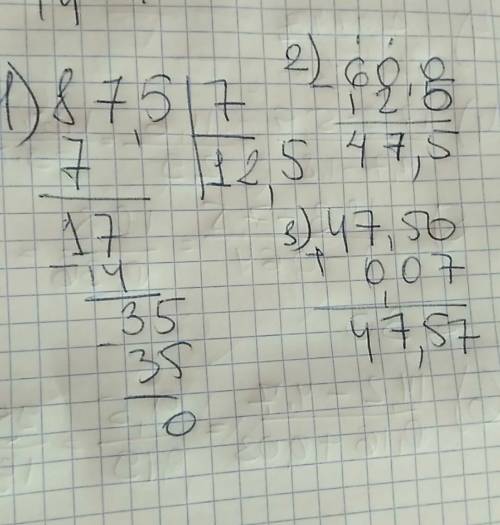 1) 87,5 | 7
7 | 12,5
17
- 14
- 35
35
0
2) 60,0
12 5
47,5
3) 47,50
+ 0,07
47,57